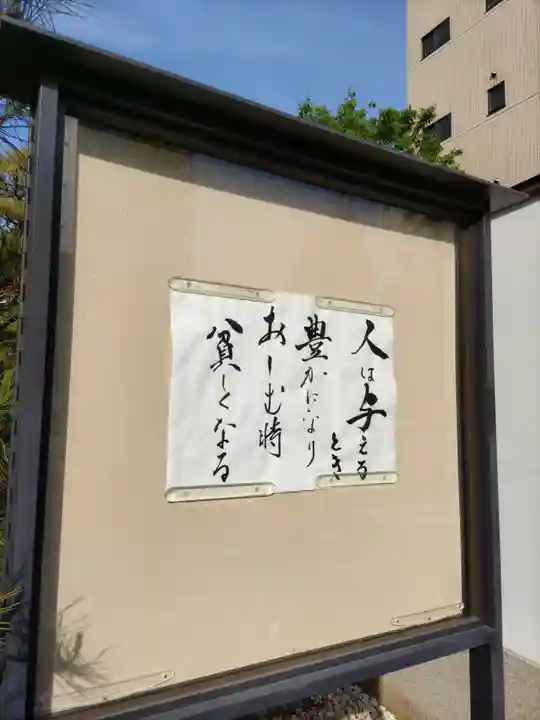 人は与えるとき
豊かになり
おしむ時
貧しくなる